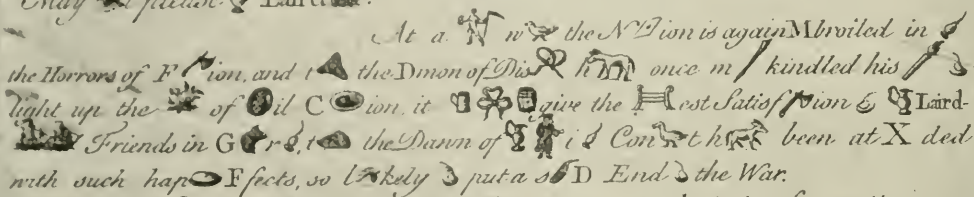 May please Lord
At a w the N ion is again Mbroiled in
the Horrors of F ion, and t the Dmon of Dis h once m kindled his
light up the of il C ion, it give the est Satisf ion Laird-
Friends in G r , t the Dawn of i Con t h been at X ded
with such hap F fects, so l kely put a s D End the War.